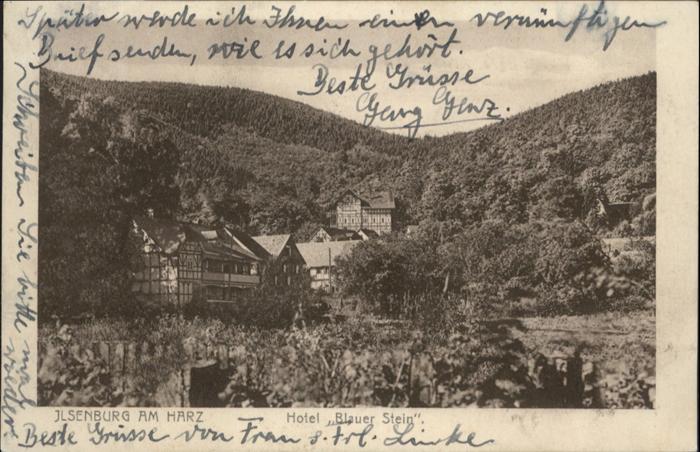 Später werde ich Ihnen einen vernünftigen
Brief senden, wie es sich gehört.
Beste Grüsse
Georg Genz.
Schreiben Sie bitte mal
wieder
JLSENBURG AM HARZ Hotel „Blauer Stein".
Beste Grüsse von Frau u. Frl. Lincke